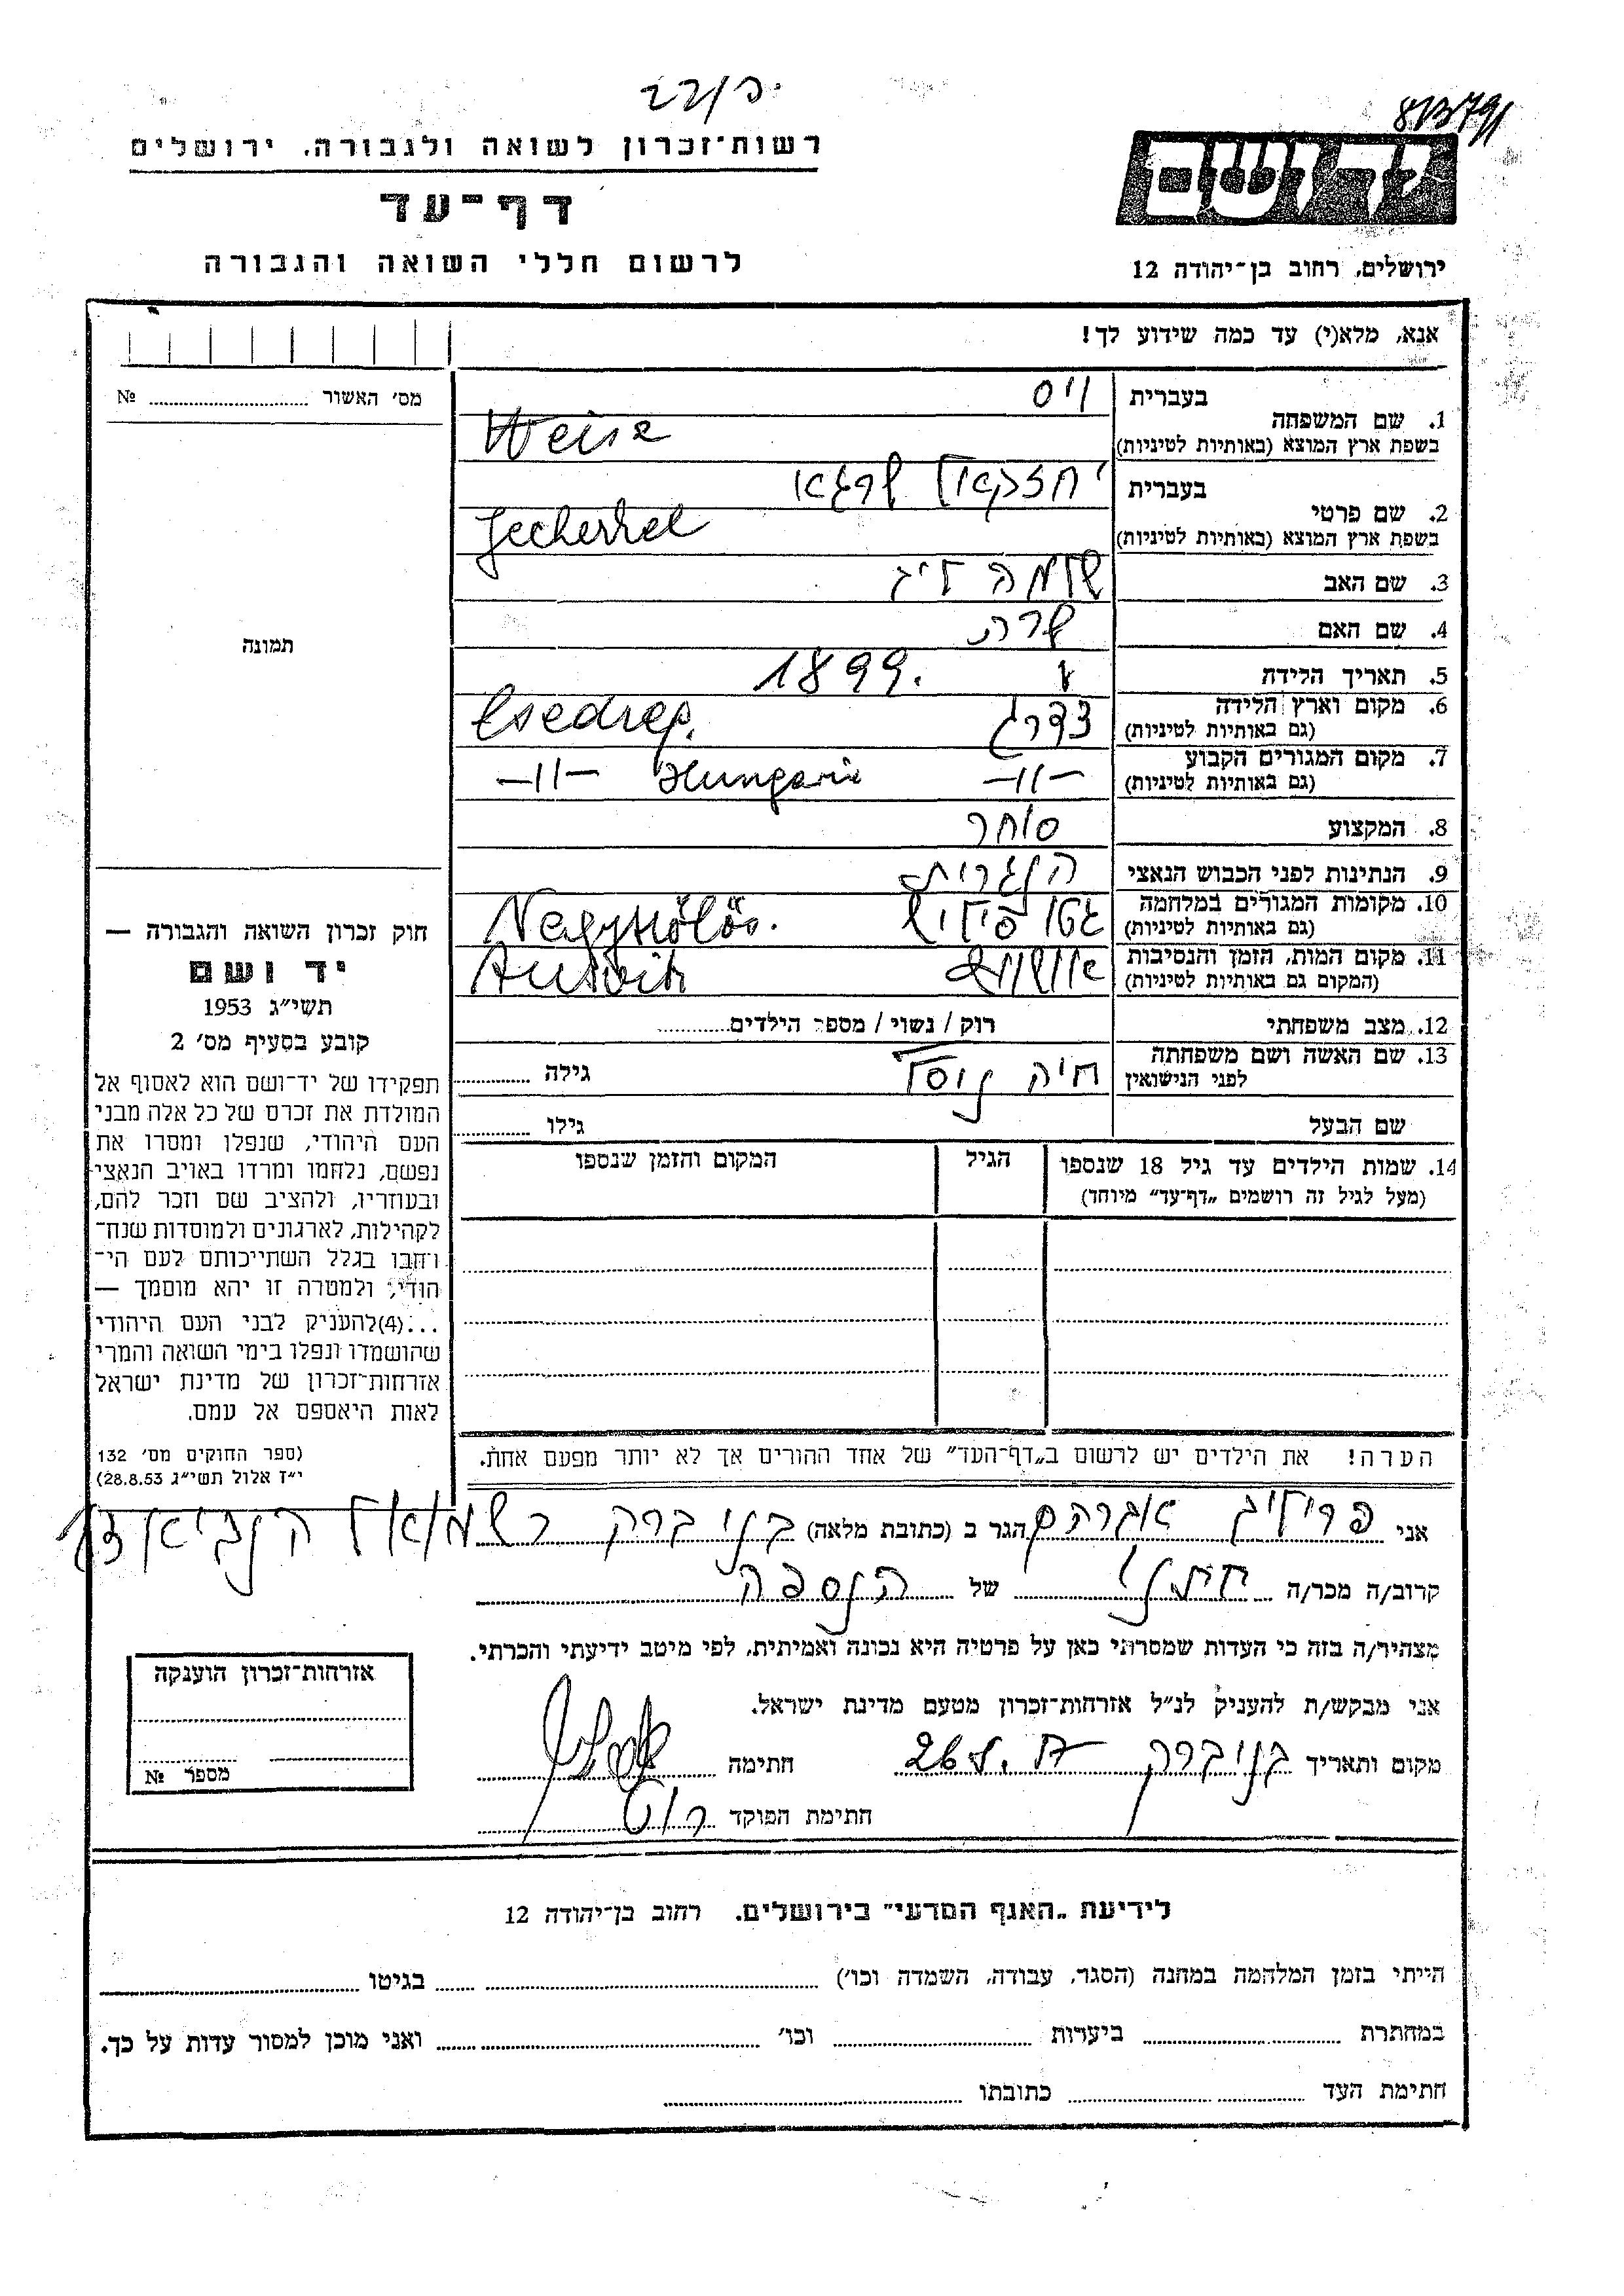 רשות־זכרון לשואה ולגבורה, ירושלים
דף־עד
לרשום חללי השואה והגבורה
יד ושם
ירושלים, רחוב בן־יהודה 12
אנא, מלא(י) עד כמה שידוע לך!
מס׳ האשור № 
תמונה
1. שם המשפחה בעברית וייס
בשפת ארץ המוצא (באותיות לטיניות) Weisz
2. שם פרטי בעברית יחזקאל שרגא
בשפת ארץ המוצא (באותיות לטיניות) Jecheskel
3. שם האב שלמה זיג
4. שם האם שרה
5. תאריך הלידה 1899.
6. מקום וארץ הלידה
(גם באותיות לטיניות) Csedreg.
7. מקום המגורים הקבוע —11—
(גם באותיות לטיניות) Hungaria —11—
8. המקצוע סוחר
9. הנתינות לפני הכבוש הנאצי הונגרית
10. מקומות המגורים במלחמה גטו
(גם באותיות לטיניות)
11. מקום המות, הזמן והנסיבות אושויץ
(המקום גם באותיות לטיניות) Ausvitz
12. מצב משפחתי רוק / נשוי / מספר הילדים
13. שם האשה ושם משפחתה
לפני הנישואין חיה גילה
שם הבעל גילו
14. שמות הילדים עד גיל 18 שנספו הגיל המקום והזמן שנספו
(מעל לגיל זה רושמים „דף־עד״ מיוחד)
הערה! את הילדים יש לרשום ב„דף־העד״ של אחד ההורים אך לא יותר מפעם אחת.
חוק זכרון השואה והגבורה —
יד ושם
תשי״ג 1953
קובע בסעיף מס׳ 2
תפקידו של יד־ושם הוא לאסוף אל
המולדת את זכרם של כל אלה מבני
העם היהודי, שנפלו ומסרו את
נפשם, נלחמו ומרדו באויב הנאצי
ובעוזריו, ולהציב שם וזכר להם,
לקהילות, לארגונים ולמוסדות שנח־
רבו בגלל השתייכותם לעם הי־
הודי; ולמטרה זו יהא מוסמך —
...(4)להעניק לבני העם היהודי
שהושמדו ונפלו בימי השואה והמרי
אזרחות־זכרון של מדינת ישראל
לאות היאספם אל עמם.
(ספר החוקים מס׳ 132
י״ז אלול תשי״ג 28.8.53)
אני אברהם הגר ב (כתובת מלאה) בני ברק
קרוב/ה מכר/ה חתני של הנספה
מצהיר/ה בזה כי העדות שמסרתי כאן על פרטיה היא נכונה ואמיתית, לפי מיטב ידיעתי והכרתי.
אני מבקש/ת להעניק לנ״ל אזרחות־זכרון מטעם מדינת ישראל.
מקום ותאריך בני ברק חתימה
חתימת הפוקד
אזרחות־זכרון הוענקה
מספר №
לידיעת „האגף המדעי״ בירושלים, רחוב בן־יהודה 12
הייתי בזמן המלחמה במחנה (הסגר, עבודה, השמדה וכו׳) בגיטו
במחתרת ביערות וכו׳ ואני מוכן למסור עדות על כך.
חתימת העד כתובתו